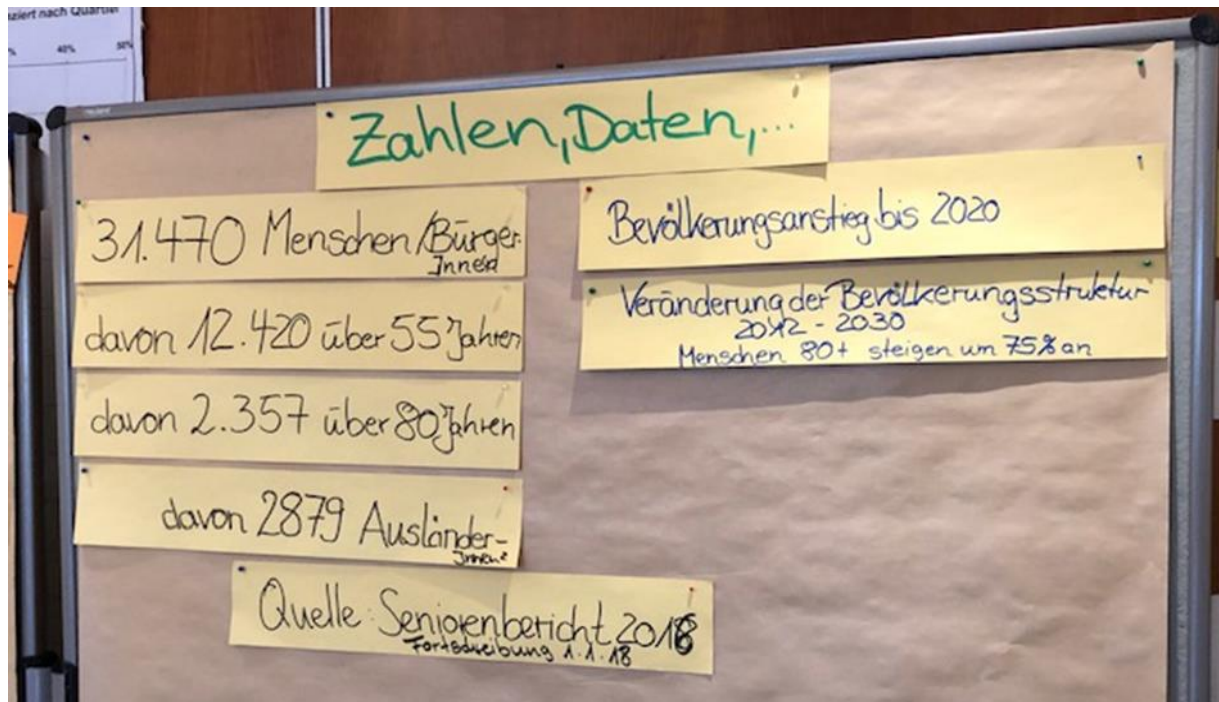 nziert nach Quartier
40%
50%
Zahlen, Daten,...
31.470 Menschen/Bürger-
Innen
davon 12.420 über 55 Jahren
davon 2.357 über 80 Jahren
davon 2879 Ausländer-
Innen
Quelle: Seniorenbericht 2018
Fortschreibung 1.1.18
Bevölkerungsanstieg bis 2020
Veränderung der Bevölkerungsstruktur
2012 - 2030
Menschen 80+ steigen um 75% an